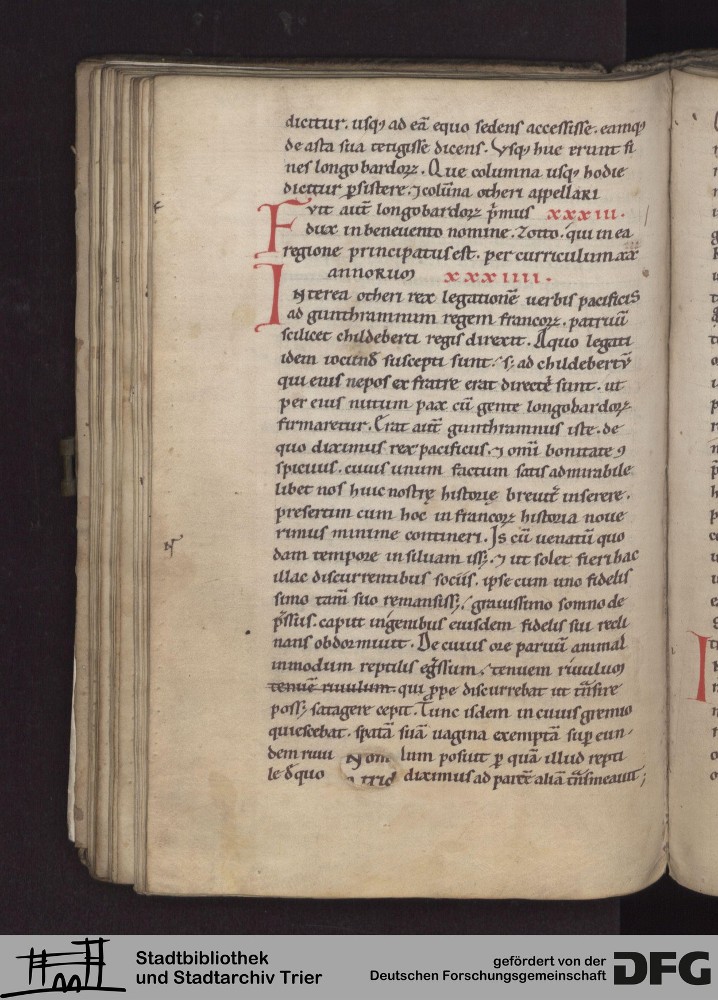 dicitur. usq; ad eā equo sedens accessisse. eamq;
de asta sua tetigisse dicens. Vsq; huc erunt fi
nes longobardoꝝ. Que columna usq; hodie
dicitur ꝑsistere. ⁊ colūna otheri appellari
Fvit aut̄ longobardoꝝ p̄mus xxxiii.
dux in beneuento nomine. Zotto. qui in ea
regione principatus est. per curriculum xx
annorum xxxiiii.
INterea otheri rex legationē uerbis pacificis
ad gunthramnum regem francoꝝ. patruū
scilicet childeberti regis direxit. A quo legati
idem iocund suscepti sunt. s; ad childebertū
qui eius nepos ex fratre erat directi sunt. ut
per eius nutum pax cū gente longobardoꝝ
firmaretur. Erat aut̄ gunthramnus iste. de
quo diximus rex pacificus. ⁊ omī bonitate ꝯ
spicuus. cuius unum factum satis admirabile
libet nos huic nostrę historię breuit̄ inserere.
presertim cum hoc in francoꝝ historia noue
rimus minime contineri. Is cū uenatū quo
dam tempore in siluam iss;. ⁊ ut solet fieri hac
illac discurrentibus sociis. ipse cum uno fidelis
simo tam̄ suo remansiss;. grauissimo somno de
p̄ssus. caput in genibus eiusdem fidelis sui recli
nans obdormiuit. De cuius ore paruū animal
in modum reptilis eg̃ssum. tenuem riuulum
tenuē riuulum. qui ꝓpe discurrebat ut tn̄sire
poss; satagere cepit. Tunc isdem in cuius gremio
quiescebat. spatā suā uagina exemptā sup eun
dem riuu Nom lum posuit ꝑ quā illud repti
le d quo a trid diximus ad parte aliā tn̄smeauit;
N
Stadtbibliothek
und Stadtarchiv Trier
gefördert von der
Deutschen Forschungsgemeinschaft
DFG